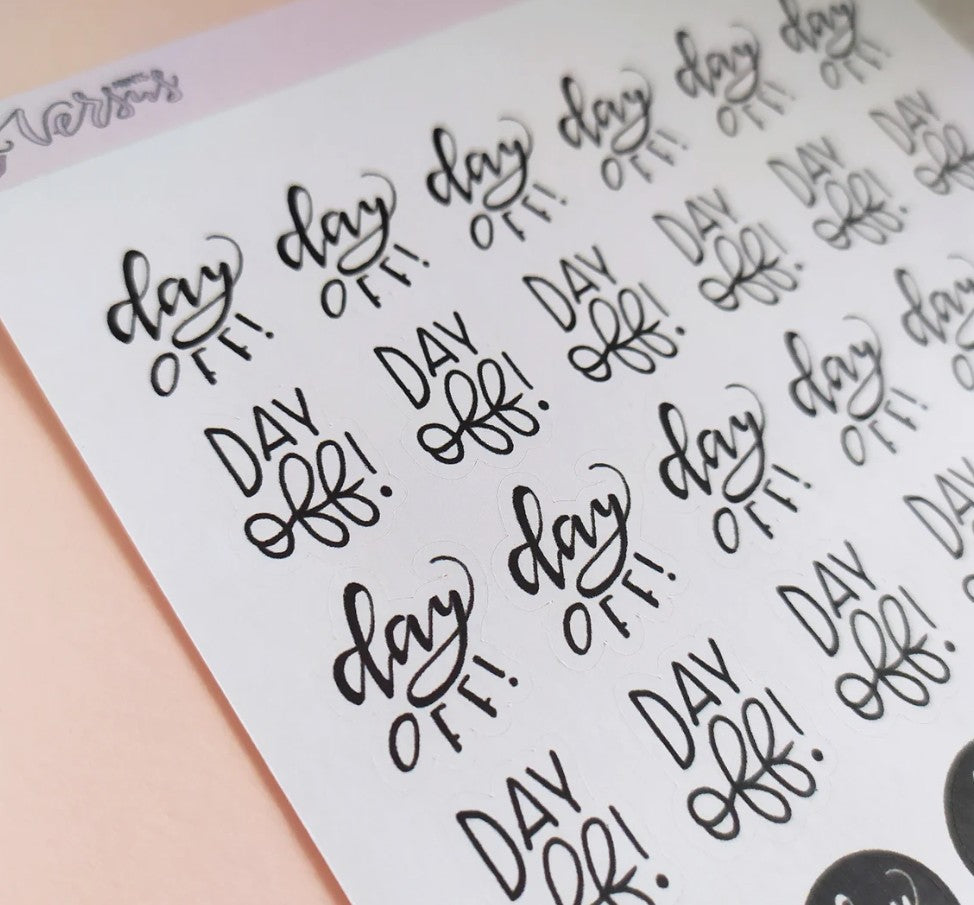 Versus
PRINTS
day day day day day day
OFF! OFF! OFF! OFF! OFF! OFF!
DAY DAY DAY DAY DAY DAY
off! off! off! off! off! off!
day day day day day
OFF! OFF! OFF! OFF! OFF!
DAY DAY DAY DAY
off! off! off!